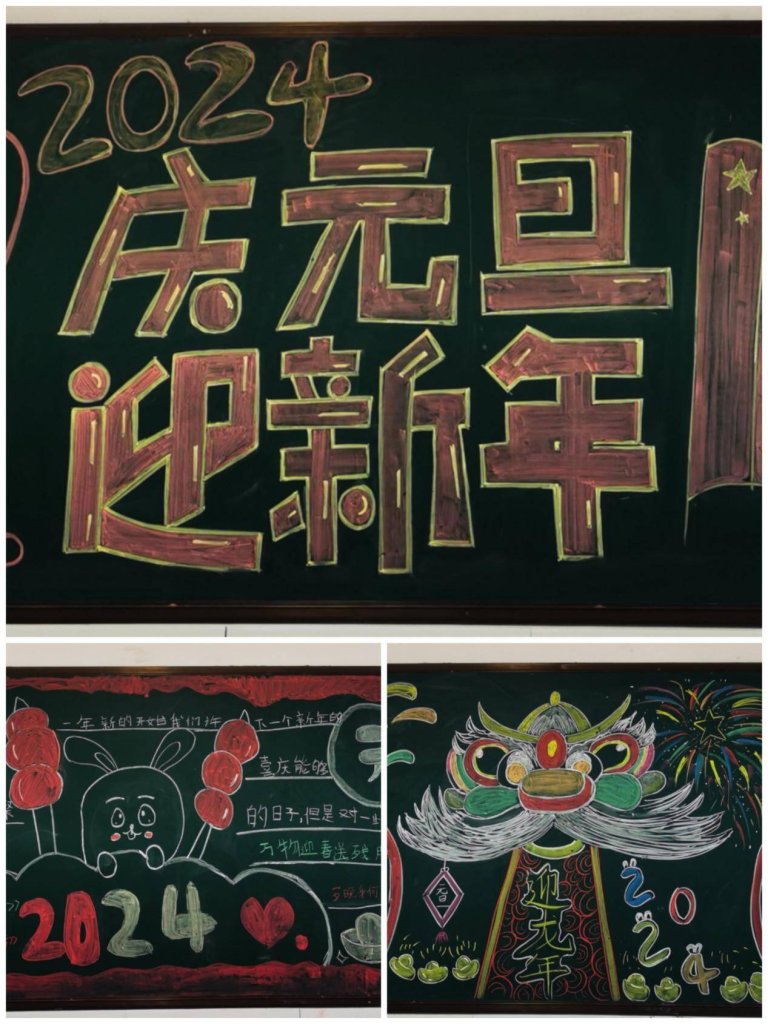 2024
庆元旦
迎新年
一年新的开始我们许下一个新年的
喜庆能够
的日子,但是对一
万物迎春送残
2024
迎龙年
元旦
2024